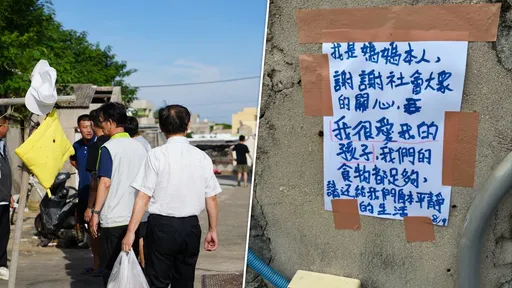 我是媽媽本人，
謝謝社會大眾
的關心，
我很愛我的
孩子，我們的
食物都足夠，
請还給我們自平靜
的生活 8/9